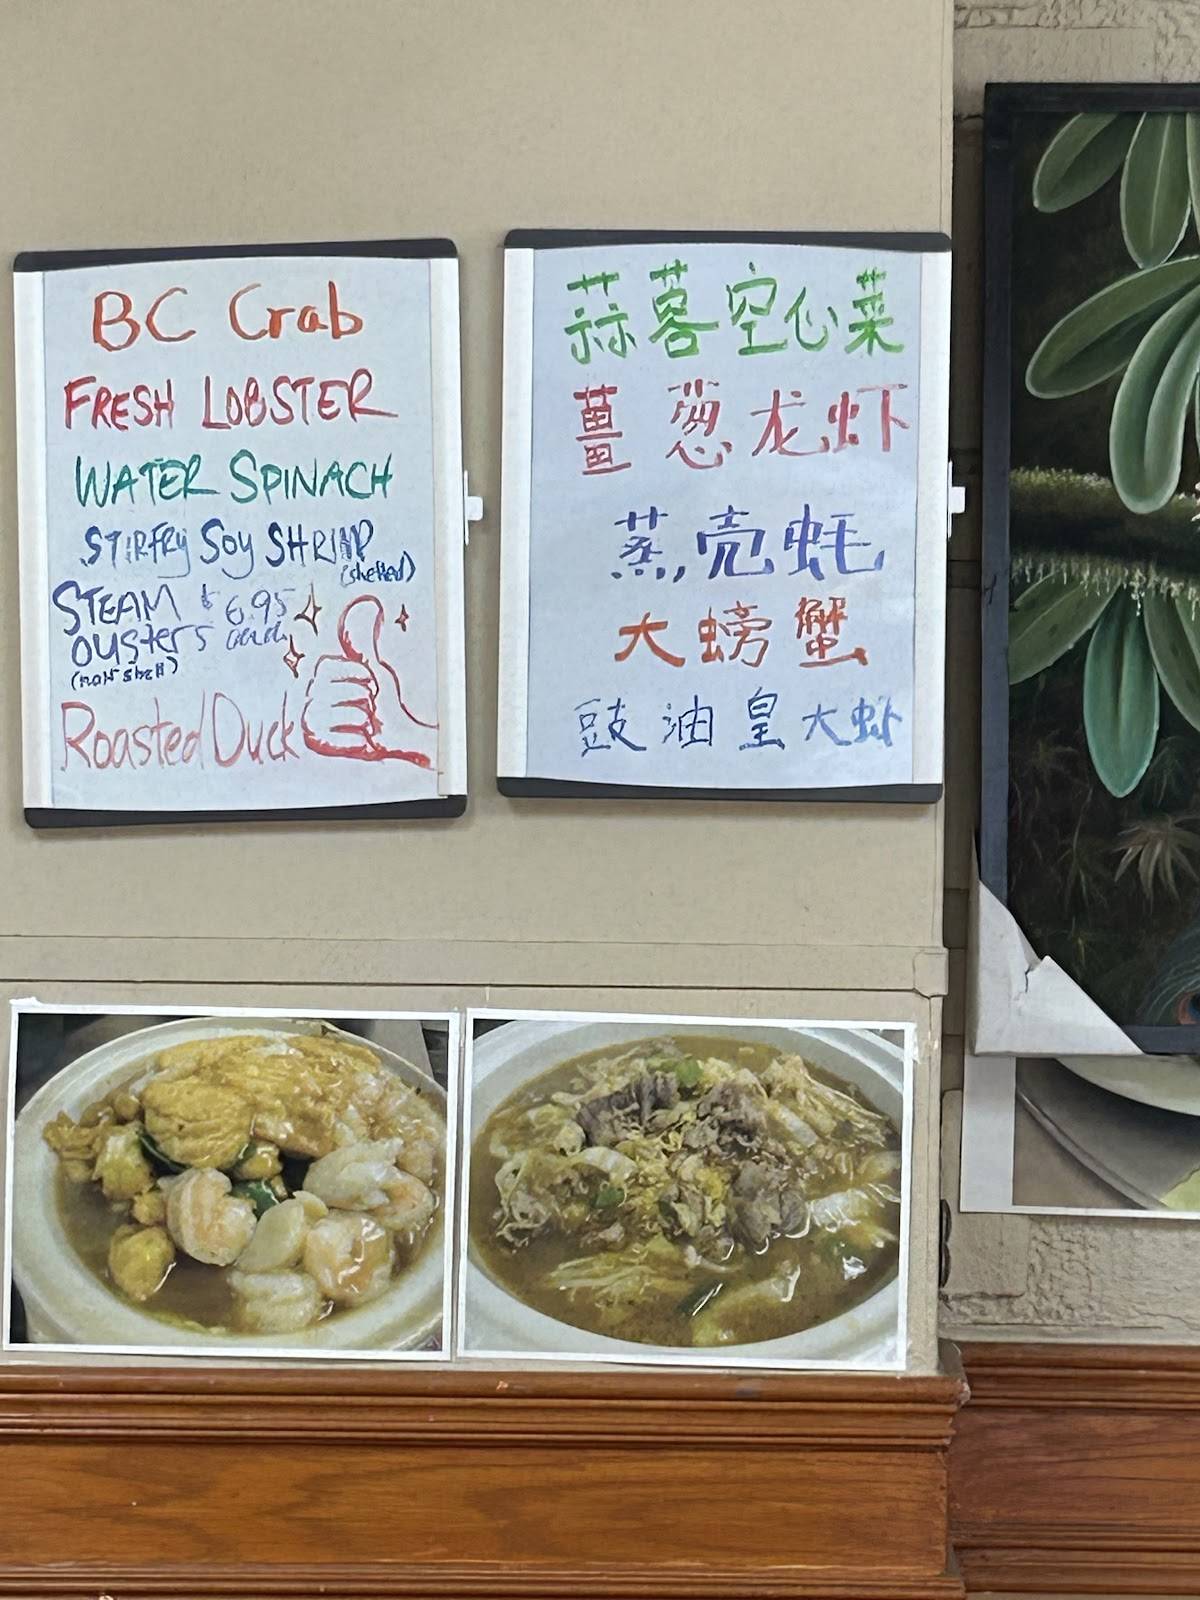 BC Crab
FRESH LOBSTER
WATER SPINACH
STIRFRY SOY SHRIMP
(shelled)
STEAM $6.95
OYSTERS each
(half shell)
Roasted Duck
蒜蓉空心菜
薑葱龙虾
蒸壳蚝
大螃蟹
豉油皇大虾